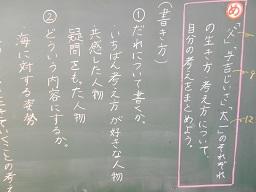 め
「父」、与吉じいさ、太一のそれぞれ
の生き方・考え方について、
自分の考えをまとめよう。
(書き方)
①だれについて書くか。
いちばん考え方が好きな人物
共感した人物
疑問をもった人物
②どういう内容にするか。
海に対する姿勢
ていることの考え